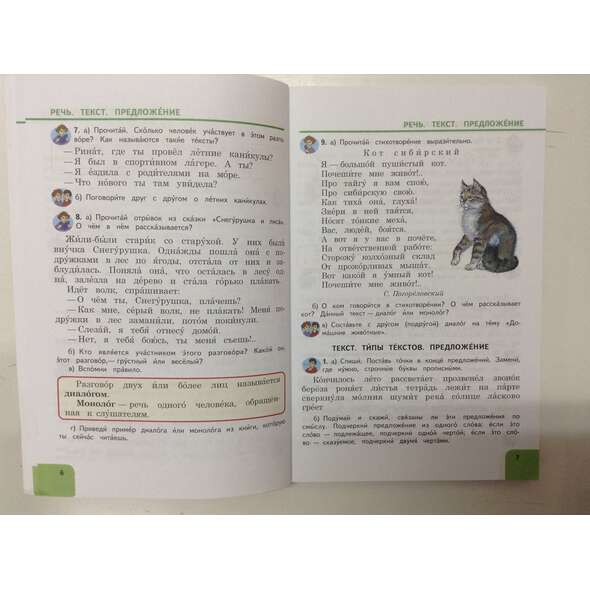 РЕЧЬ. ТЕКСТ. ПРЕДЛОЖЕ́НИЕ
7. а) Прочита́й. Ско́лько челове́к уча́ствует в э́том разго-
во́ре? Как называ́ются таки́е те́ксты?
— Рина́т, где ты провёл ле́тние кани́кулы?
— Я был в спорти́вном ла́гере. А ты?
— Я е́здила с роди́телями на мо́ре.
— Что но́вого ты там уви́дела?
б) Поговори́те друг с дру́гом о ле́тних кани́кулах.
8. а) Прочита́й отры́вок из ска́зки «Снегу́рушка и лиса́».
О чём в нём расска́зывается?
Жи́ли-бы́ли стари́к со стару́хой. У них была́
вну́чка Снегу́рушка. Одна́жды пошла́ она́ с по-
дру́жками в лес по я́годы, отста́ла от них и за-
блуди́лась. Поняла́ она́, что оста́лась в лесу́ од-
на́, зале́зла на де́рево и ста́ла го́рько пла́кать.
Идёт волк, спра́шивает:
— О чём ты, Снегу́рушка, пла́чешь?
— Как мне, се́рый волк, не пла́кать! Меня́ по-
дру́жки в лес замани́ли, пото́м поки́нули.
— Слеза́й, я тебя́ отнесу́ домо́й.
— Нет, я тебя́ бою́сь, ты меня́ съешь!..
б) Кто явля́ется уча́стником э́того разгово́ра? Како́й он,
э́тот разгово́р,— гру́стный и́ли весёлый?
в) Вспо́мни пра́вило.
Разгово́р двух и́ли бо́лее лиц называ́ется
диало́гом.
Моноло́г — речь одного́ челове́ка, обращён-
ная к слу́шателям.
г) Приведи́ приме́р диало́га и́ли моноло́га из кни́ги, кото́рую
ты сейча́с чита́ешь.
6
РЕЧЬ. ТЕКСТ. ПРЕДЛОЖЕ́НИЕ
9. а) Прочита́й стихотворе́ние вырази́тельно.
Кот сиби́рский
Я — большо́й пуши́стый кот.
Почеши́те мне живо́т!..
Про тайгу́ я вам спою́,
Про сиби́рскую свою́.
Как тиха́ она́, глуха́!
Зве́ри в ней тая́тся,
Но́сят то́нкие меха́,
Вас, люде́й, боя́тся.
А вот я у вас в почёте,
На отве́тственной рабо́те:
Сторожу́ колхо́зный склад
От прожо́рливых мыша́т.
Вот како́й я у́мный кот!
Почеши́те мне живо́т!..
С. Погоре́ловский
б) О ком говори́тся в стихотворе́нии? О чём расска́зывает
кот? Да́нный текст — диало́г и́ли моноло́г?
в) Соста́вьте с дру́гом (подру́гой) диало́г на те́му «До-
ма́шние живо́тные».
ТЕКСТ. ТИ́ПЫ ТЕ́КСТОВ. ПРЕДЛОЖЕ́НИЕ
1. а) Спиши́. Поста́вь то́чки в конце́ предложе́ний. Замени́,
где ну́жно, стро́чные бу́квы прописны́ми.
Ко́нчилось ле́то рассвета́ет прозвене́л звоно́к
берёза роня́ет ли́стья тетра́дь лежи́т па́рта
сверкну́ла мо́лния шуми́т река́ со́лнце ла́сково
гре́ет
б) Поду́май и скажи́, свя́заны ли э́ти предложе́ния по
смы́слу. Подчеркни́ предложе́ние из одного́ сло́ва: е́сли э́то
сло́во — подлежа́щее, подчеркни́ одно́й черто́й; е́сли э́то сло́-
во — сказу́емое, подчеркни́ двумя́ черта́ми.
7